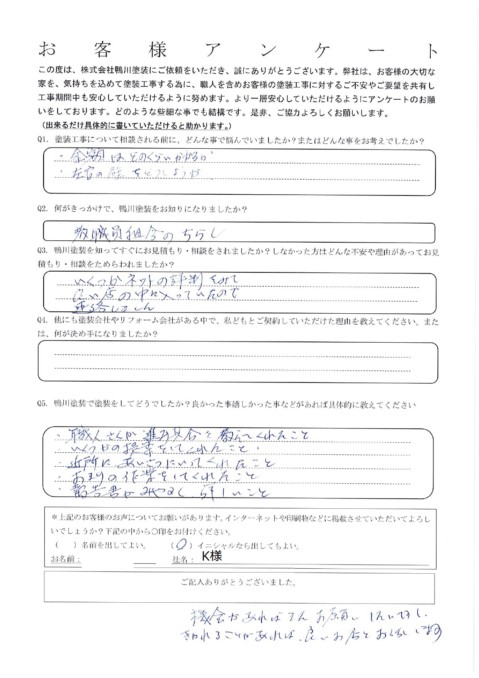 お客様アンケート
この度は、株式会社鴨川塗装にご依頼をいただき、誠にありがとうございます。弊社は、お客様の大切な
家を、気持ちを込めて塗装工事する為に、職人を含めお客様の塗装工事に対するご不安やご要望を共有し
工事期間中も安心していただけるように努めます。より一層安心していただけるようにアンケートのお願
いをしております。どのような些細な事でも結構です。是非、ご協力よろしくお願いします。
(出来るだけ具体的に書いていただけると助かります。)
Q1. 塗装工事について相談される前に、どんな事で悩んでいましたか？またはどんな事をお考えでしたか？
・金額はどのくらいかかるか
Q2. 何がきっかけで、鴨川塗装をお知りになりましたか？
教職員組合のちらし
Q3. 鴨川塗装を知ってすぐにお見積もり・相談をされましたか？しなかった方はどんな不安や理由があってお見
積もり・相談をためらわれましたか？
いくつかネットの評判をみて
良い店の中に入っていたので
連絡しました
Q4. 他にも塗装会社やリフォーム会社がある中で、私どもとご契約していただけた理由を教えてください。また
は、何が決め手になりましたか？
Q5. 鴨川塗装で塗装をしてどうでしたか？良かった事嬉しかった事などがあれば具体的に教えてください
・職人さんが進み具合を教えてくれたこと
いくつかの提案をしてくれたこと
・近所にあいさつにいってくれたこと
・の作業をしてくれたこと
・報告書がみやすく詳しいこと
※上記のお客様のお声についてお願いがあります。インターネットや印刷物などに掲載させていただいてよろし
いでしょうか？下記の中から〇印をお付けください。
（　）名前を出してよい。　（〇）イニシャルなら出してもよい。
お名前：　姓名：K様
ご記入ありがとうございました。
機会があればまたお願いしたいですし
きかれることがあれば、良いお店と